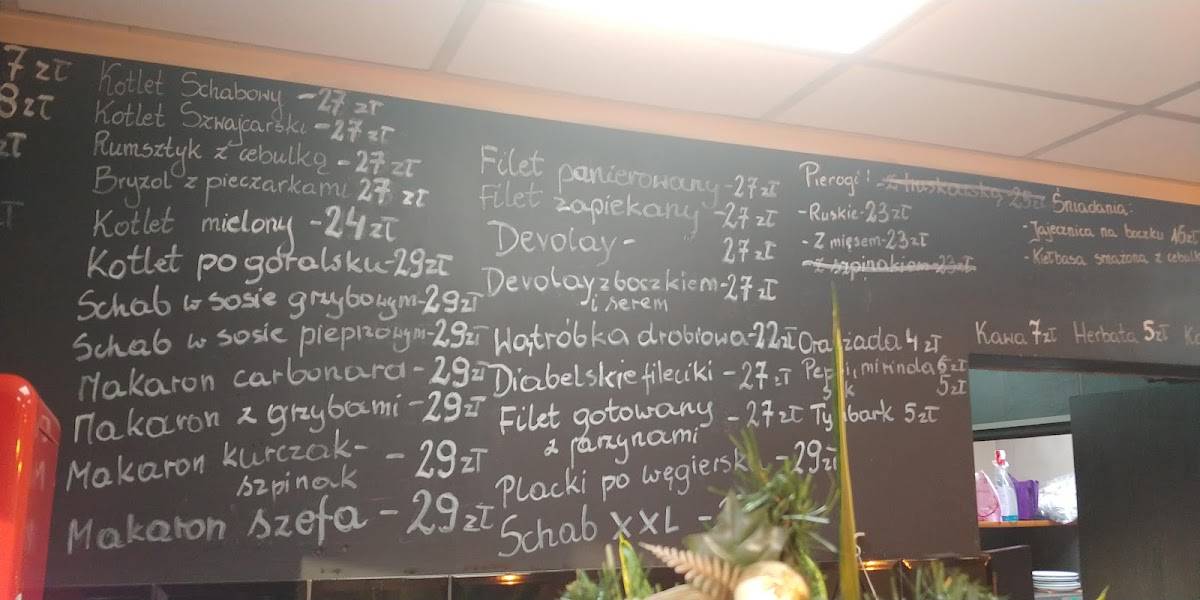 7 zł
8 zł
zł
Kotlet Schabowy - 27 zł
Kotlet Szwajcarski - 27 zł
Rumsztyk z cebulką - 27 zł
Bryzol z pieczarkami 27 zł
Kotlet mielony - 24 zł
Kotlet po góralsku - 29 zł
Schab w sosie grzybowym - 29 zł
Schab w sosie pieprzowym - 29 zł
Makaron carbonara - 29 zł
Makaron z grzybami - 29 zł
Makaron kurczak-
szpinak - 29 zł
Makaron szefa - 29 zł
Filet panierowany - 27 zł
Filet zapiekany - 27 zł
Devolay - 27 zł
Devolay z boczkiem - 27 zł
i serem
Wątróbka drobiowa - 22 zł
Diabelskie fileciki - 27 zł
Filet gotowany - 27 zł
z jarzynami
Placki po węgiersk - 29 zł
Schab XXL -
Pierogi:
- Ruskie - 23 zł
- Z mięsem - 23 zł
- Z szpinakiem - 23 zł
Oranżada 4 zł
Pepsi, mirinda 6 zł
5 zł
Tymbark 5 zł
Śniadania:
- Jajecznica na boczku 16 zł
- Kiełbasa smażona z cebulk
Kawa 7 zł Herbata 5 zł